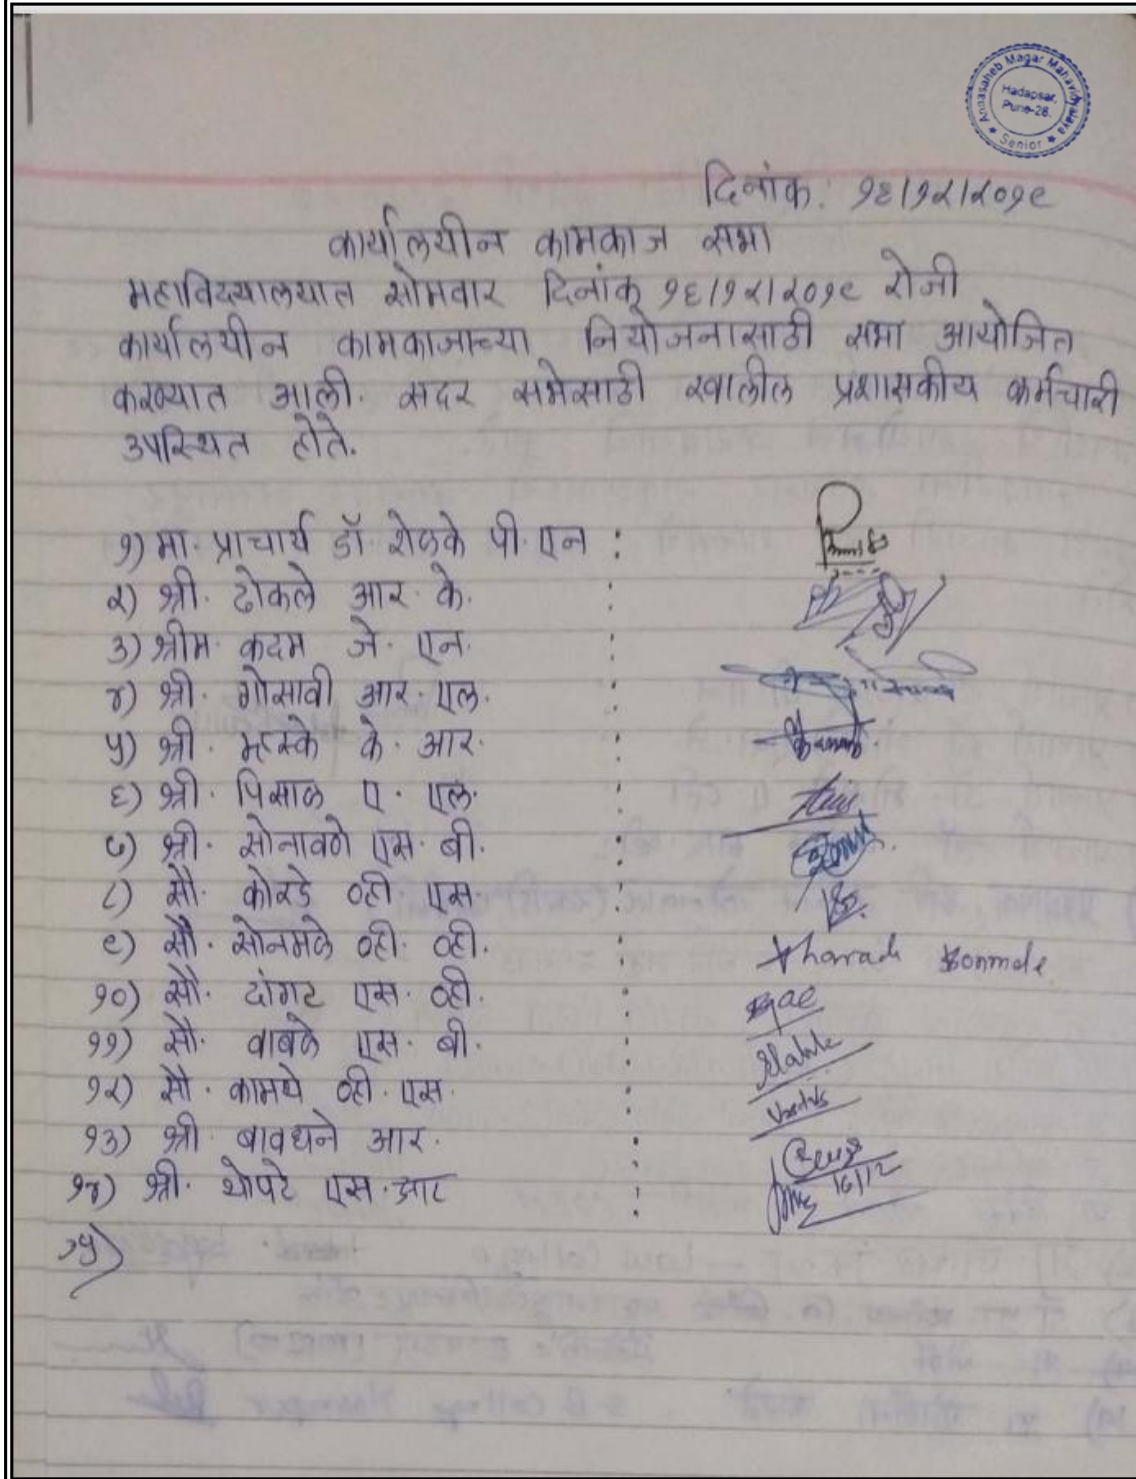 Annasaheb Magar Mahavidyalaya
Hadapsar,
Pune-28.
★ Senior ★
दिनांक: १६/१२/२०१९
कार्यालयीन कामकाज सभा
महाविद्यालयात सोमवार दिनांक १६/१२/२०१९ रोजी
कार्यालयीन कामकाजाच्या नियोजनासाठी सभा आयोजित
करण्यात आली. सदर सभेसाठी खालील प्रशासकीय कर्मचारी
उपस्थित होते.
१) मा. प्राचार्य डॉ. शेळके पी. एन :
२) श्री. ढोकले आर. के. :
३) श्रीम. कदम जे. एन. :
४) श्री. गोसावी आर. एल. :
५) श्री. म्हस्के के. आर. :
६) श्री. पिसाळ ए. एल. :
७) श्री. सोनावणे एस. बी. :
८) सौ. कोरडे व्ही एस. :
९) सौ. सोनमळे व्ही. व्ही. : Sonmale
१०) सौ. दांगट एस. व्ही. :
११) सौ. वाबळे एस. बी. :
१२) सौ. कामथे व्ही. एस. :
१३) श्री. बावधने आर. :
१४) श्री. थोपटे एस. आर : 16/12
१५)